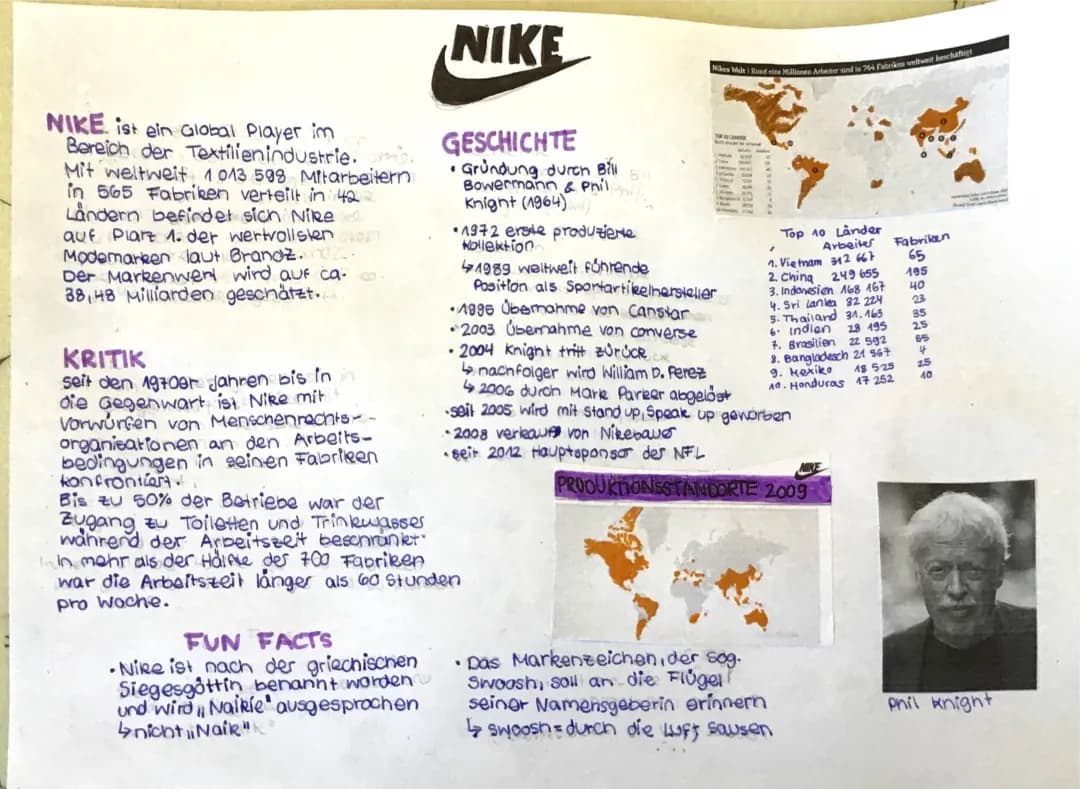 NIKE
NIKE ist ein Global Player im
Bereich der Textilienindustrie.
Mit weltweit 1 013 598 Mitarbeitern
in 565 Fabriken verteilt in 42
Ländern befindet sich Nike
auf Platz 1. der wertvollsten
Modemarken laut Brandz.
Der Markenwert wird auf ca.
38,48 Milliarden geschätzt.
KRITIK
seit den 1970er Jahren bis in
die Gegenwart ist Nike mit
Vorwürfen von Menschenrechts-
organisationen an den Arbeits-
bedingungen in seinen Fabriken
konfrontiert.
Bis zu 50% der Betriebe war der
Zugang zu Toiletten und Trinkwasser
während der Arbeitszeit beschränkt.
In mehr als der Hälfte der 700 Fabriken
war die Arbeitszeit länger als 60 Stunden
pro Woche.
GESCHICHTE
• Gründung durch Bill
Bowermann & Phil
Knight (1964)
• 1972 erste produzierte
Kollektion
↳ 1989 weltweit führende
Position als Sportartikelhersteller
• 1995 Übernahme von Canstar
• 2003 Übernahme von converse
• 2004 Knight tritt zurück
↳ nachfolger wird William D. Perez
↳ 2006 durch Mark Parker abgelöst
• seit 2005 wird mit Stand up, Speak up geworben
• 2008 verkauf von Nikebauer
• seit 2012 Hauptsponsor der NFL
Nikes Welt | Rund eine Millionen Arbeiter sind in 764 Fabriken weltweit beschäftigt
TOP 10 LÄNDER
Top 10 Länder
Arbeiter Fabriken
1. Vietnam 312 667 65
2. China 249 655 195
3. Indonesien 168 167 40
4. Sri Lanka 32 224 23
5. Thailand 31.163 35
6. Indien 28 195 25
7. Brasilien 22 592 65
8. Bangladesch 21 567 4
9. Mexiko 18 525 25
10. Honduras 17 252 10
NIKE
PRODUKTIONSSTANDORTE 2009
Phil Knight
FUN FACTS
• Nike ist nach der griechischen
Siegesgöttin benannt worden
und wird „Naikie" ausgesprochen
↳ nicht „Naik"
• Das Markenzeichen, der sog.
Swoosh, soll an die Flügel
seiner Namensgeberin erinnern
↳ swoosh = durch die Luft sausen